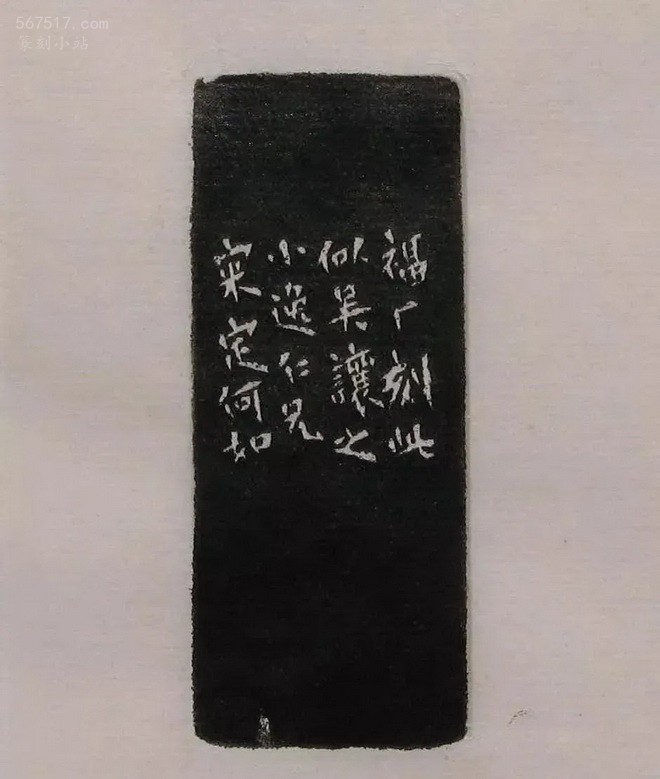 567517.com
篆刻小站
福厂刻此
似吴讓之
小逸仁兄
宷定何如